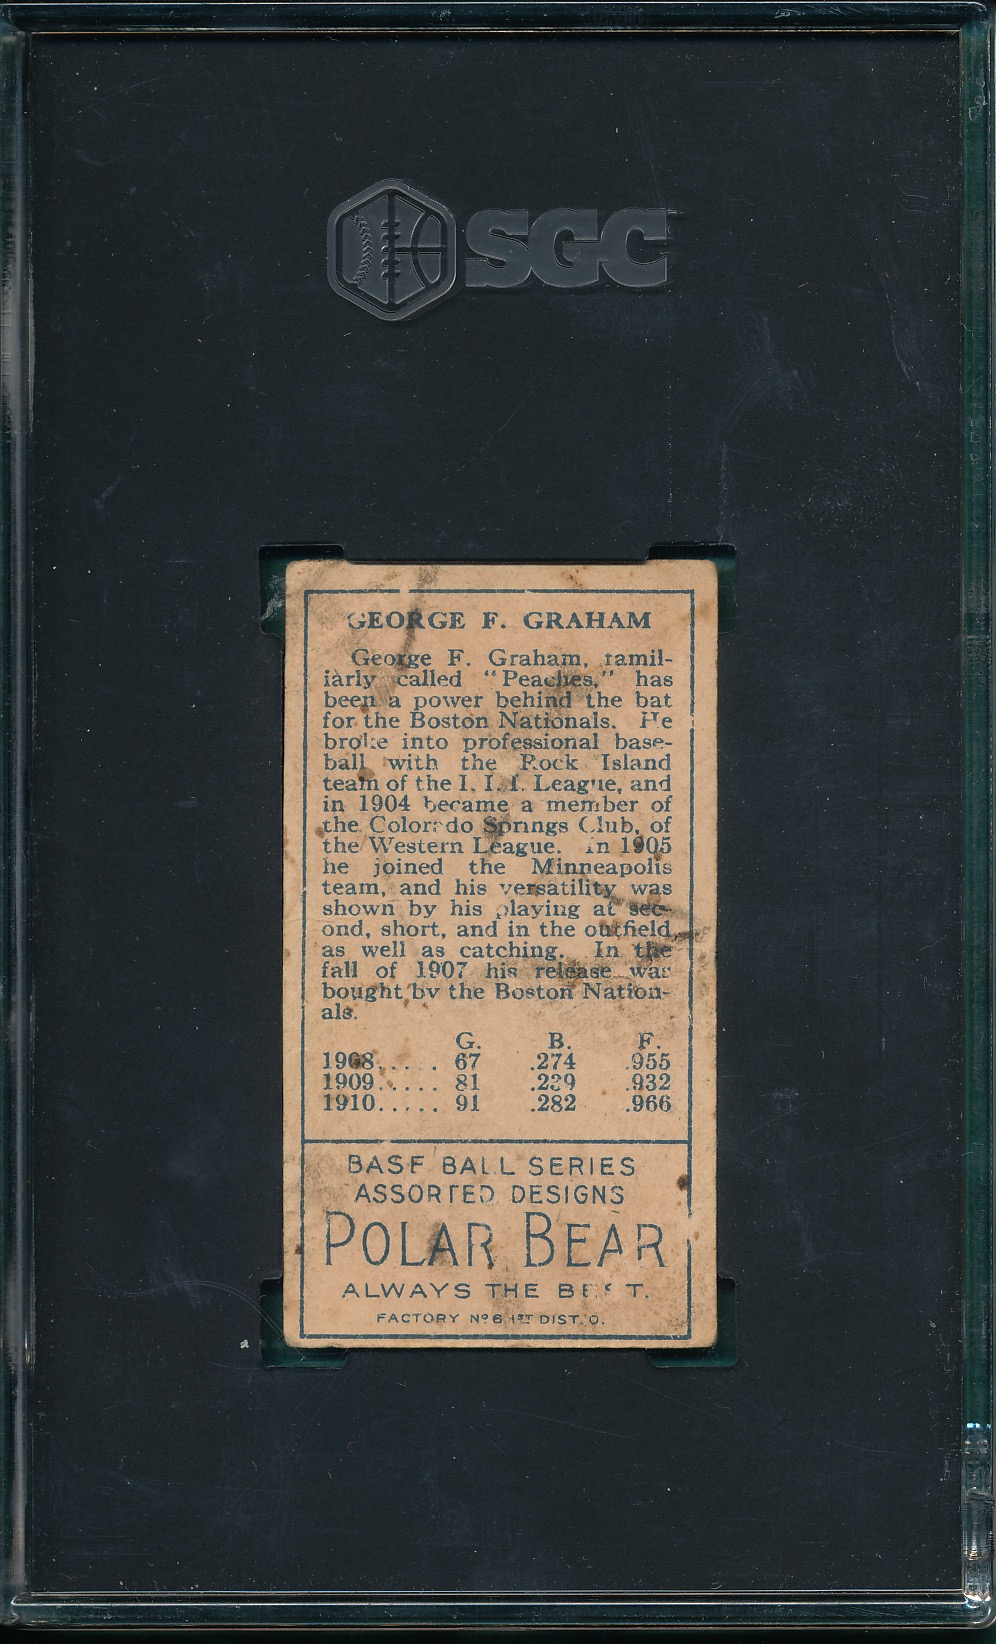 SGC
GEORGE F. GRAHAM
George F. Graham, famil-
iarly called "Peaches," has
been a power behind the bat
for the Boston Nationals. He
broke into professional base-
ball with the Rock Island
team of the I. I. I. League, and
in 1904 became a member of
the Colorado Springs Club, of
the Western League. In 1905
he joined the Minneapolis
team, and his versatility was
shown by his playing at sec-
ond, short, and in the outfield,
as well as catching. In the
fall of 1907 his release was
bought by the Boston Nation-
als.
G. B. F.
1908..... 67 .274 .955
1909..... 81 .239 .932
1910..... 91 .282 .966
BASE BALL SERIES
ASSORTED DESIGNS
POLAR BEAR
ALWAYS THE BEST.
FACTORY Nº 6 1ST DIST. O.